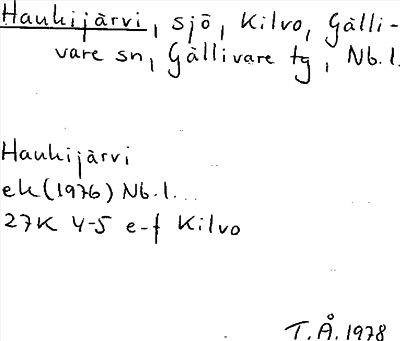 Haukijärvi, sjö, Kilvo, Gälli-
vare sn, Gällivare tg, Nb.l.
Haukijärvi
ek (1976) Nb.l...
27K 4-5 e-f Kilvo
T.Å. 1978